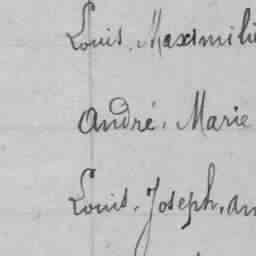 Louis, Maximili
André, Marie
Louis, Joseph, an